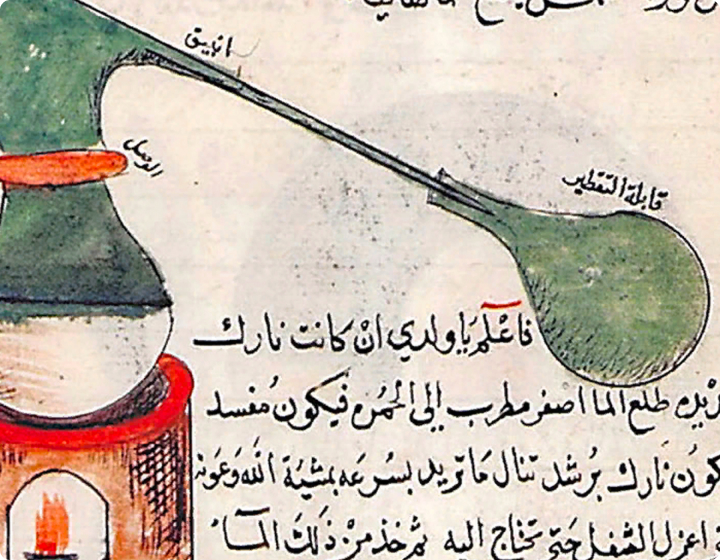 انبيق
الوصل
قابلة التقطير
فاعْلم يَا ولدي انْ كانت نارك
طلع الما اصفر مطرب إلى الحمره فيكون مُفسد
نارك برُشد تنال مَا تريد بسُرعَه بمشيَة اللّه وَعَونه
اعزل الثفل حَتي تحتاج اليه ثم خذ منْ ذلكَ المآء